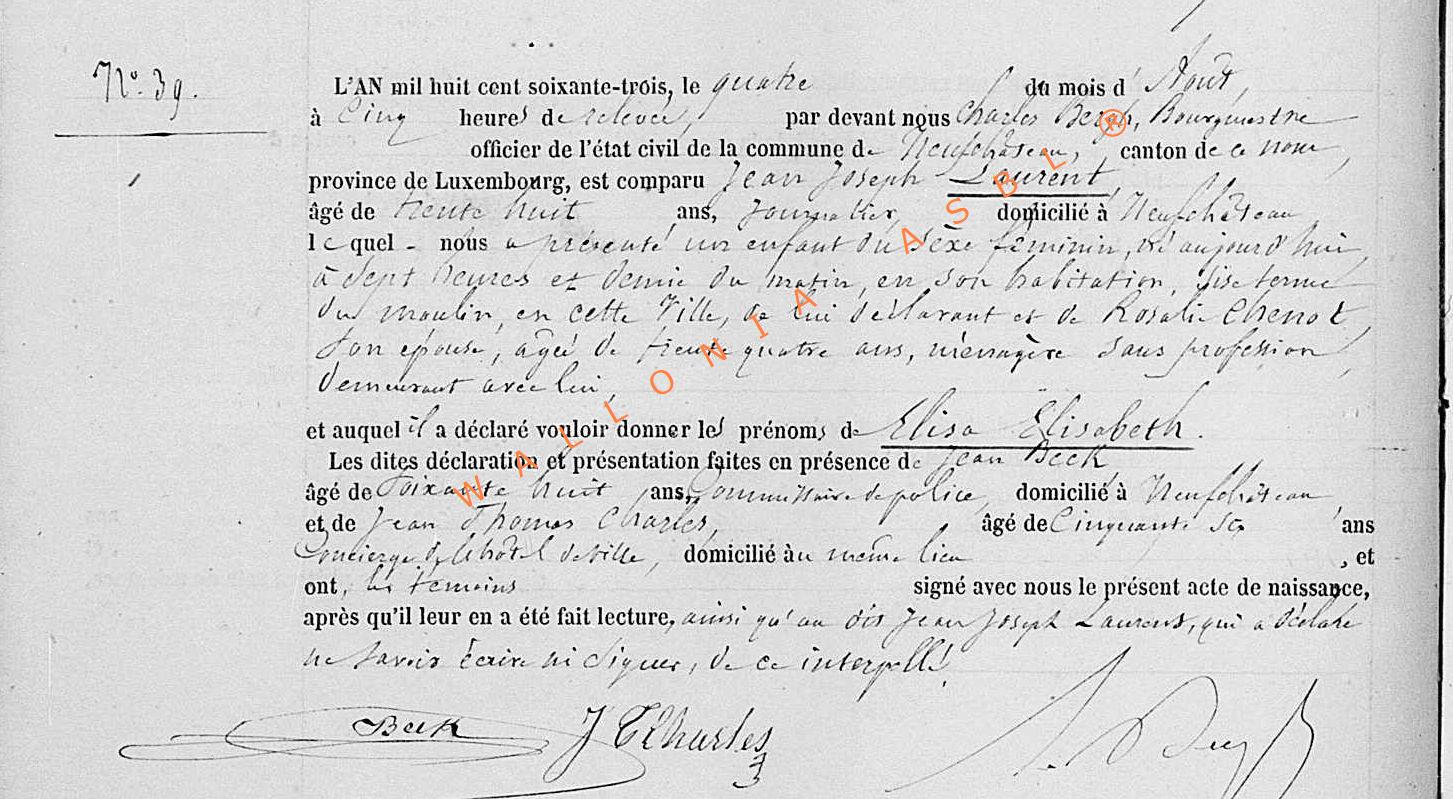 N° 39.
L'AN mil huit cent soixante-trois, le quatre du mois d'Août,
à Cinq heures de relevée, par devant nous Charles Bergh, Bourgmestre
officier de l'état civil de la commune de Neufchâteau, canton de ce nom,
province de Luxembourg, est comparu Jean Joseph Laurent,
âgé de trente huit ans, journalier, domicilié à Neufchâteau,
lequel - nous a présenté un enfant du sèxe féminin, né aujourd'hui,
à sept heures et demie du matin, en son habitation, sise
du moulin, en cette Ville, de lui déclarant et de Rosalie Chenot,
son épouse, âgée de trente quatre ans, ménagère sans profession,
demeurant avec lui,
et auquel il a déclaré vouloir donner les prénoms de Elisa Elisabeth.
Les dites déclaration et présentation faites en présence de Jean Beck,
âgé de soixante huit ans, Commissaire de police, domicilié à Neufchâteau
et de Jean Thomas Charles, âgé de Cinquante six ans
Concierge de l'hôtel de ville, domicilié au même lieu, et
ont, les témoins signé avec nous le présent acte de naissance,
après qu'il leur en a été fait lecture, ainsi qu'au dit Jean Joseph Laurent, qui a déclaré
ne savoir écrire ni signer, de ce interpellé.
Beck J T Charles
WALLONIA ASBL ®